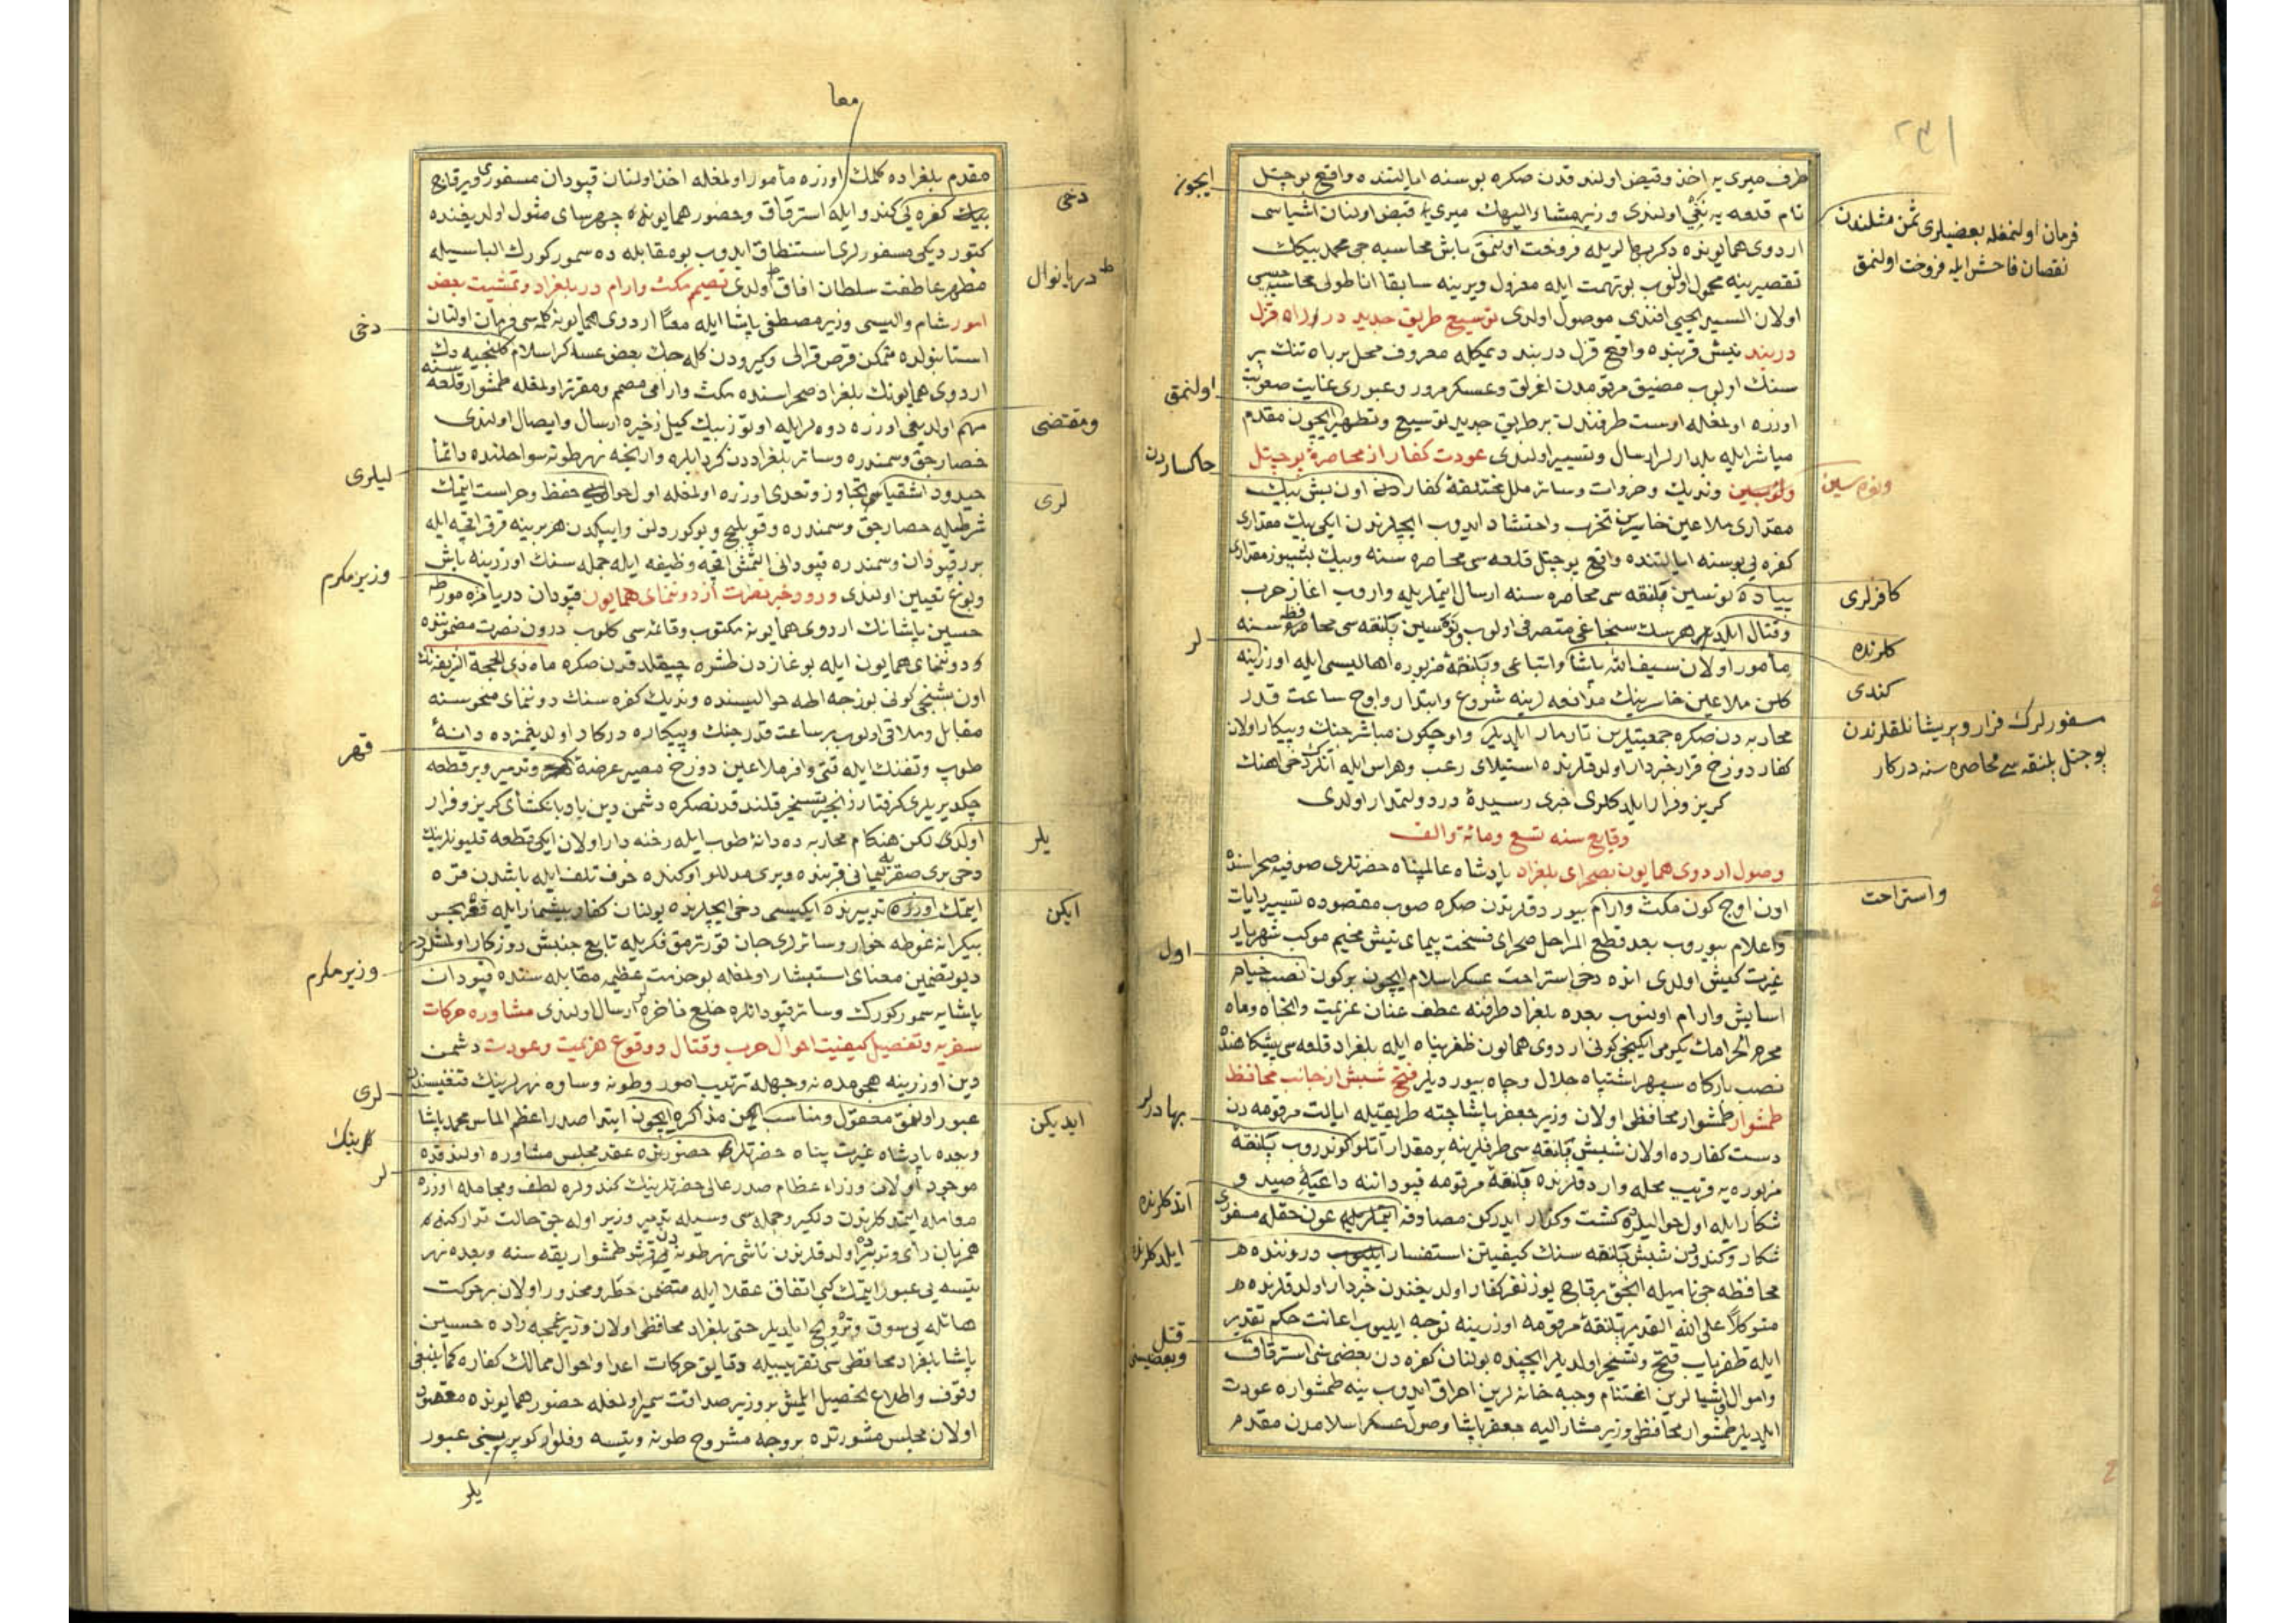 ٢٣١
طرف میری یه اخذ و قبض اولندقدن صكره بوسنه ایالتنده واقع بوجتل
نام قلعه یه نفی اولندی و زیر مشار الیهك میری یه قبض اولنان اشیاسی
اردوی همایونده دكر بهالریله فروخت اولنمق باش محاسبه جی محمد بیكك
تقصیرینه محمول اولنوب بو تهمت ایله معزول و یرینه سابقا اناطولی محاسبه جیسی
اولان السید یحیی افندی موصول اولدی توسیع طریق جدید در راه قزل
دربند نیش قربنده واقع قزل دربند دیمكله معروف محل بر باه تنك پر
سنك اولوب مضیق مرقومدن اغرلق و عسكر مرور و عبوری غایت صعوبت
اوزره اولمغله اوست طرفندن بر طریق جدید توسیع و تطهیر ایچون مقدم
مباشر ایله بلدارلر ارسال و تسییر اولندی عودت كفار از محاصرۀ بوجتل
وندیك و خروات و سائر ملل مختلفۀ كفاردن اون بش بیك
مقداری ملاعین خاسرین تحزب و احتشاد ایدوب ایچلرندن ایكی بیك مقداری
كفره یی بوسنه ایالتنده واقع بوجتل قلعه سی محاصره سنه و بیك بشیوز مقداری
پیاده نوسین پلنقه سی محاصره سنه ارسال ایتملریله واروب اغاز حرب
و قتال هرسك سنجاغی متصرفی اولوب پلنقه سی محافظه سنه
مأمور اولان سیف الله پاشا و اتباعی و پلنقۀ مزبوره اهالیسی ایله اوزرینه
كلن ملاعین خاسرینك مدافعه لرینه شروع و ابتدار و اوچ ساعت قدر
محاربه دن صكره جمعیتلرین تارمار ایلدیلر و اوچكون مباشر جنك و پیكار اولان
كفار دوزخ قرار خبردار اولدقلرنده استیلای رعب و هراس ایله آنلر دخی اهنك
كریز و فرار ایلدكلری خبری رسیدۀ در دولتمدار اولدی
وقایع سنه تسع و مائة و الف
وصول اردوی همایون بصحرای بلغراد پادشاه عالمپناه حضرتلری صوفیه صحراسنده
اون اوچ كون مكث و ارام بیوردقلرندن صكره صوب مقصوده تسییر رایات
و اعلام بیوروب بعد قطع المراحل صحرای فسحت پیمای نیش مخیم موكب شهریار
غیرت كیش اولدی انده دخی استراحت عسكر اسلام ایچون بر كون نصب خیام
اسایش و ارام اولنوب بعده بلغراد طرفنه عطف عنان عزیمت و ماه
محرم الحرامك یكرمی ایكنجی كونی اردوی همایون ظفرپناه ایله بلغراد قلعه سی پیشكاهنده
نصب باركاه سپهر اشتباه جلال و جاه بیوردیلر فتح شبش از جانب محافظ
طمشوار طمشوار محافظی اولان وزیر جعفر پاشا چته طریقیله ایالت مرقومه دن
دست كفارده اولان شبش پلنقه سی طرفلرینه بر مقدار آتلو كوندروب پلنقۀ
مزبوره یه قریب محله واردقلرنده پلنقۀ مرقومه قپوداننه داعیۀ صید و
شكار ایله اول حوالیلرده كشت و كذار ایدركن مصادفه عون حقله مسفوری
شكار و كندودن شبش پلنقه سنك كیفیتن استفسار دروننده
محافظه جی نامیله انجق بر قاچ یوز نفر كفار اولدیغندن خبردار اولدقلرنده
متوكلاً علی الله القدیر پلنقۀ مرقومه اوزرینه توجه ایدوب اعانت حكم تقدیر
ایله ظفریاب فتح و تسخیر اولدیلر ایچنده بولنان كفره دن بعضی سنی استرقاق
و اموال و اشیالرین اغتنام و جبه خانه لرین احراق ایدوب ینه طمشواره عودت
ایلدیلر طمشوار محافظی وزیر مشار الیه جعفر پاشا وصول عسكر اسلامدن مقدم
فرمان اولنمغله بعضیلری ثمن مثلندن
نقصان فاحش ایله فروخت اولنمق
كافرلری
كلرنده
كندی
مسفورلرك فرار و پریشانلقلرندن
بوجتل پلنقه سی محاصره سنه دركار
و استراحت
ایچون
اولنمق
خاكساردن
لر
اول
بهادرلر
ایلدكلرنده
قتل
و بعضیسنی
معا
مقدم بلغراده كلمك اوزره مأمور اولمغله اخذ اولنان قپودان مسفوری و بر قاچ
كفره یی كندو ایله استرقاق و حضور همایونده چهرسای مثول اولدیغنده
كتوردیكی مسفورلری استنطاق ایدوب بو مقابله ده سمور كورك الباسیله
مظهر عاطفت سلطان افاق اولدی تصمیم مكث و ارام در بلغراد و تمشیت بعض
امور شام والیسی وزیر مصطفی پاشا ایله معاً اردوی همایونه كلمه سی فرمان اولنان
استانبولده متمكن قرص قرالی و كیرودن كله جك بعض عساكر اسلام كلنجیه دك
اردوی همایونك بلغراد صحراسنده مكث و ارامی مصمم و مقرر اولمغله طمشوار قلعه سنه
مهم اولدیغی اوزره دوه لر ایله اوتوز بیك كیل ذخیره ارسال و ایصال اولندی
حصارجق و سمندره و سائر بلغراددن كرادیلره وارنجه نهر طونه سواحلنده دائما
حیدود اشقیاسی تجاوز و تعدی اوزره اولمغله اول حوالی حفظ و حراست ایتمك
شرطیله حصارجق و سمندره و قوبلیچ و بوكوردلن و ایپكدن هر برینه قرقر اقچه ایله
برر قپودان و سمندره قپودانی التمش اقچه وظیفه ایله جمله سنك اوزرینه باش
و بوغ تعیین اولندی ورود خبر نصرت از دوننمای همایون قپودان دریا
حسین پاشانك اردوی همایونه مكتوب و قائمه سی كلوب درون نصرت مضموننده
دوننمای همایون ایله بوغازدن طشره چیقلدقدن صكره ماه ذی الحجة الشریفه نك
اون بشنجی كونی بوزجه اطه حوالیسنده وندیك كفره سنك دوننمای منحوسنه
مقابل و ملاقی اولوب بر ساعت قدر جنك و پیكاره دركار اولدیغمزده دانۀ
طوپ و تفنك ایله قتی وافر ملاعین دوزخ مصیر عرضۀ و تدمیر و بر قطعه
چكدیریلری كرفتار زنجیر تسخیر قلندقدنصكره دشمن دین بادبانكشای كریز و فرار
اولدی لكن هنكام محاربه ده دانۀ طوپ ایله رخنه دار اولان ایكی قطعه قلیونلرینك
دخی بری صقز لیمانی قربنده و بری مدللو اوكنده خوف تلف ایله باشدن قره
ایتمك اوزره تدبیرنده ایكیسی دخی ایچلرنده بولنان كفار بیشمار ایله قعر بحر
بیكرانه غوطه خوار و سائرلری جان قورتارمق فكریله تابع جنبش روزكار اولمشلردر
دیو تضمین معنای استبشار اولمغله بو خدمت عظیمه مقابله سنده قپودان
پاشایه سمور كورك و سائر قپودانلره خلع فاخره ارسال اولندی مشاوره حركات
سفریه و تفصیل كیفیت احوال حرب و قتال و وقوع هزیمت و عودت دشمن
دین اوزرینه هجومده نه وجهله ترتیب امور و طونه و ساوه نهرلرینك قنغیسندن
عبور اولنمق معقول و مناسب ایدیكن مذاكره ایچون ابتدا صدر اعظم الماس محمد پاشا
و بعده پادشاه غیرت پناه حضرتلری حضورنده عقد مجلس مشاوره اولندقده
موجود اولان وزراء عظام صدر عالی حضرتلرینك كندولره لطف و مجامله اوزره
معامله ایتمدكلرندن دلكیر و جمله سی وسیله تدمیر وزیر اوله جق حالت تداركنه
همزبان رأی و تدبیر اولدقلرندن ناشی نهر طونه دن قرشو طمشوار یقه سنه و بعده نهر
تیسه یی عبور ایتمك كبی اتفاق عقلا ایله متضمن خطر و محذور اولان بر حركت
هائله یی سوق و ترویج ایلدیلر حتی بلغراد محافظی اولان وزیر عمجه زاده حسین
پاشا بلغراد محافظه سی تقریبیله دقایق حركات اعدا و احوال ممالك كفاره كما ینبغی
وقوف و اطلاع تحصیل ایلمش بر وزیر صداقت سمیر اولمغله حضور همایونده معقود
اولان مجلس مشورتده بر وجه مشروح طونه و تیسه و فلوار كوپریسنی عبور
دخی
دریانوال
و مقتضی
لری
یلر
ایكن
ایدیكن
دخی
لیلری
وزیر مكرم
قهر
وزیر مكرم
لری
لرینك
لر
یلر